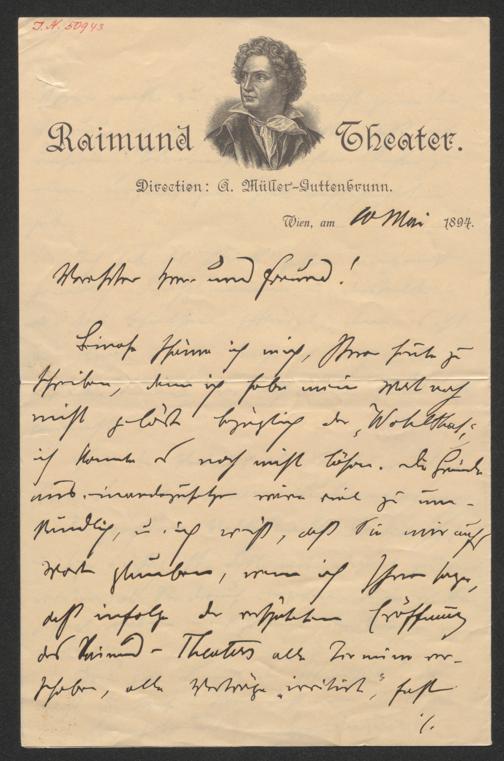 J.N. 50943
Raimund Theater.
Direction: A. Müller-Guttenbrunn.
Wien, am 10 Mai 1894.
Verehrter Herr und Freund!
Beinah schäme ich mich, Ihnen heute zu
schreiben, denn ich habe mein Wort noch
nicht gelöst bezüglich der „Wohlthat“,
ich konnte es noch nicht lösen. Die Gründe
auseinanderzusetzen wäre viel zu um-
ständlich, u. ich weiß, daß Sie mir aufs
Wort glauben, wenn ich Ihnen sage,
daß infolge der verspäteten Eröffnung
des Raimund-Theaters alle Termine ver-
schoben, alle Verträge „irritirt“, fast
./.